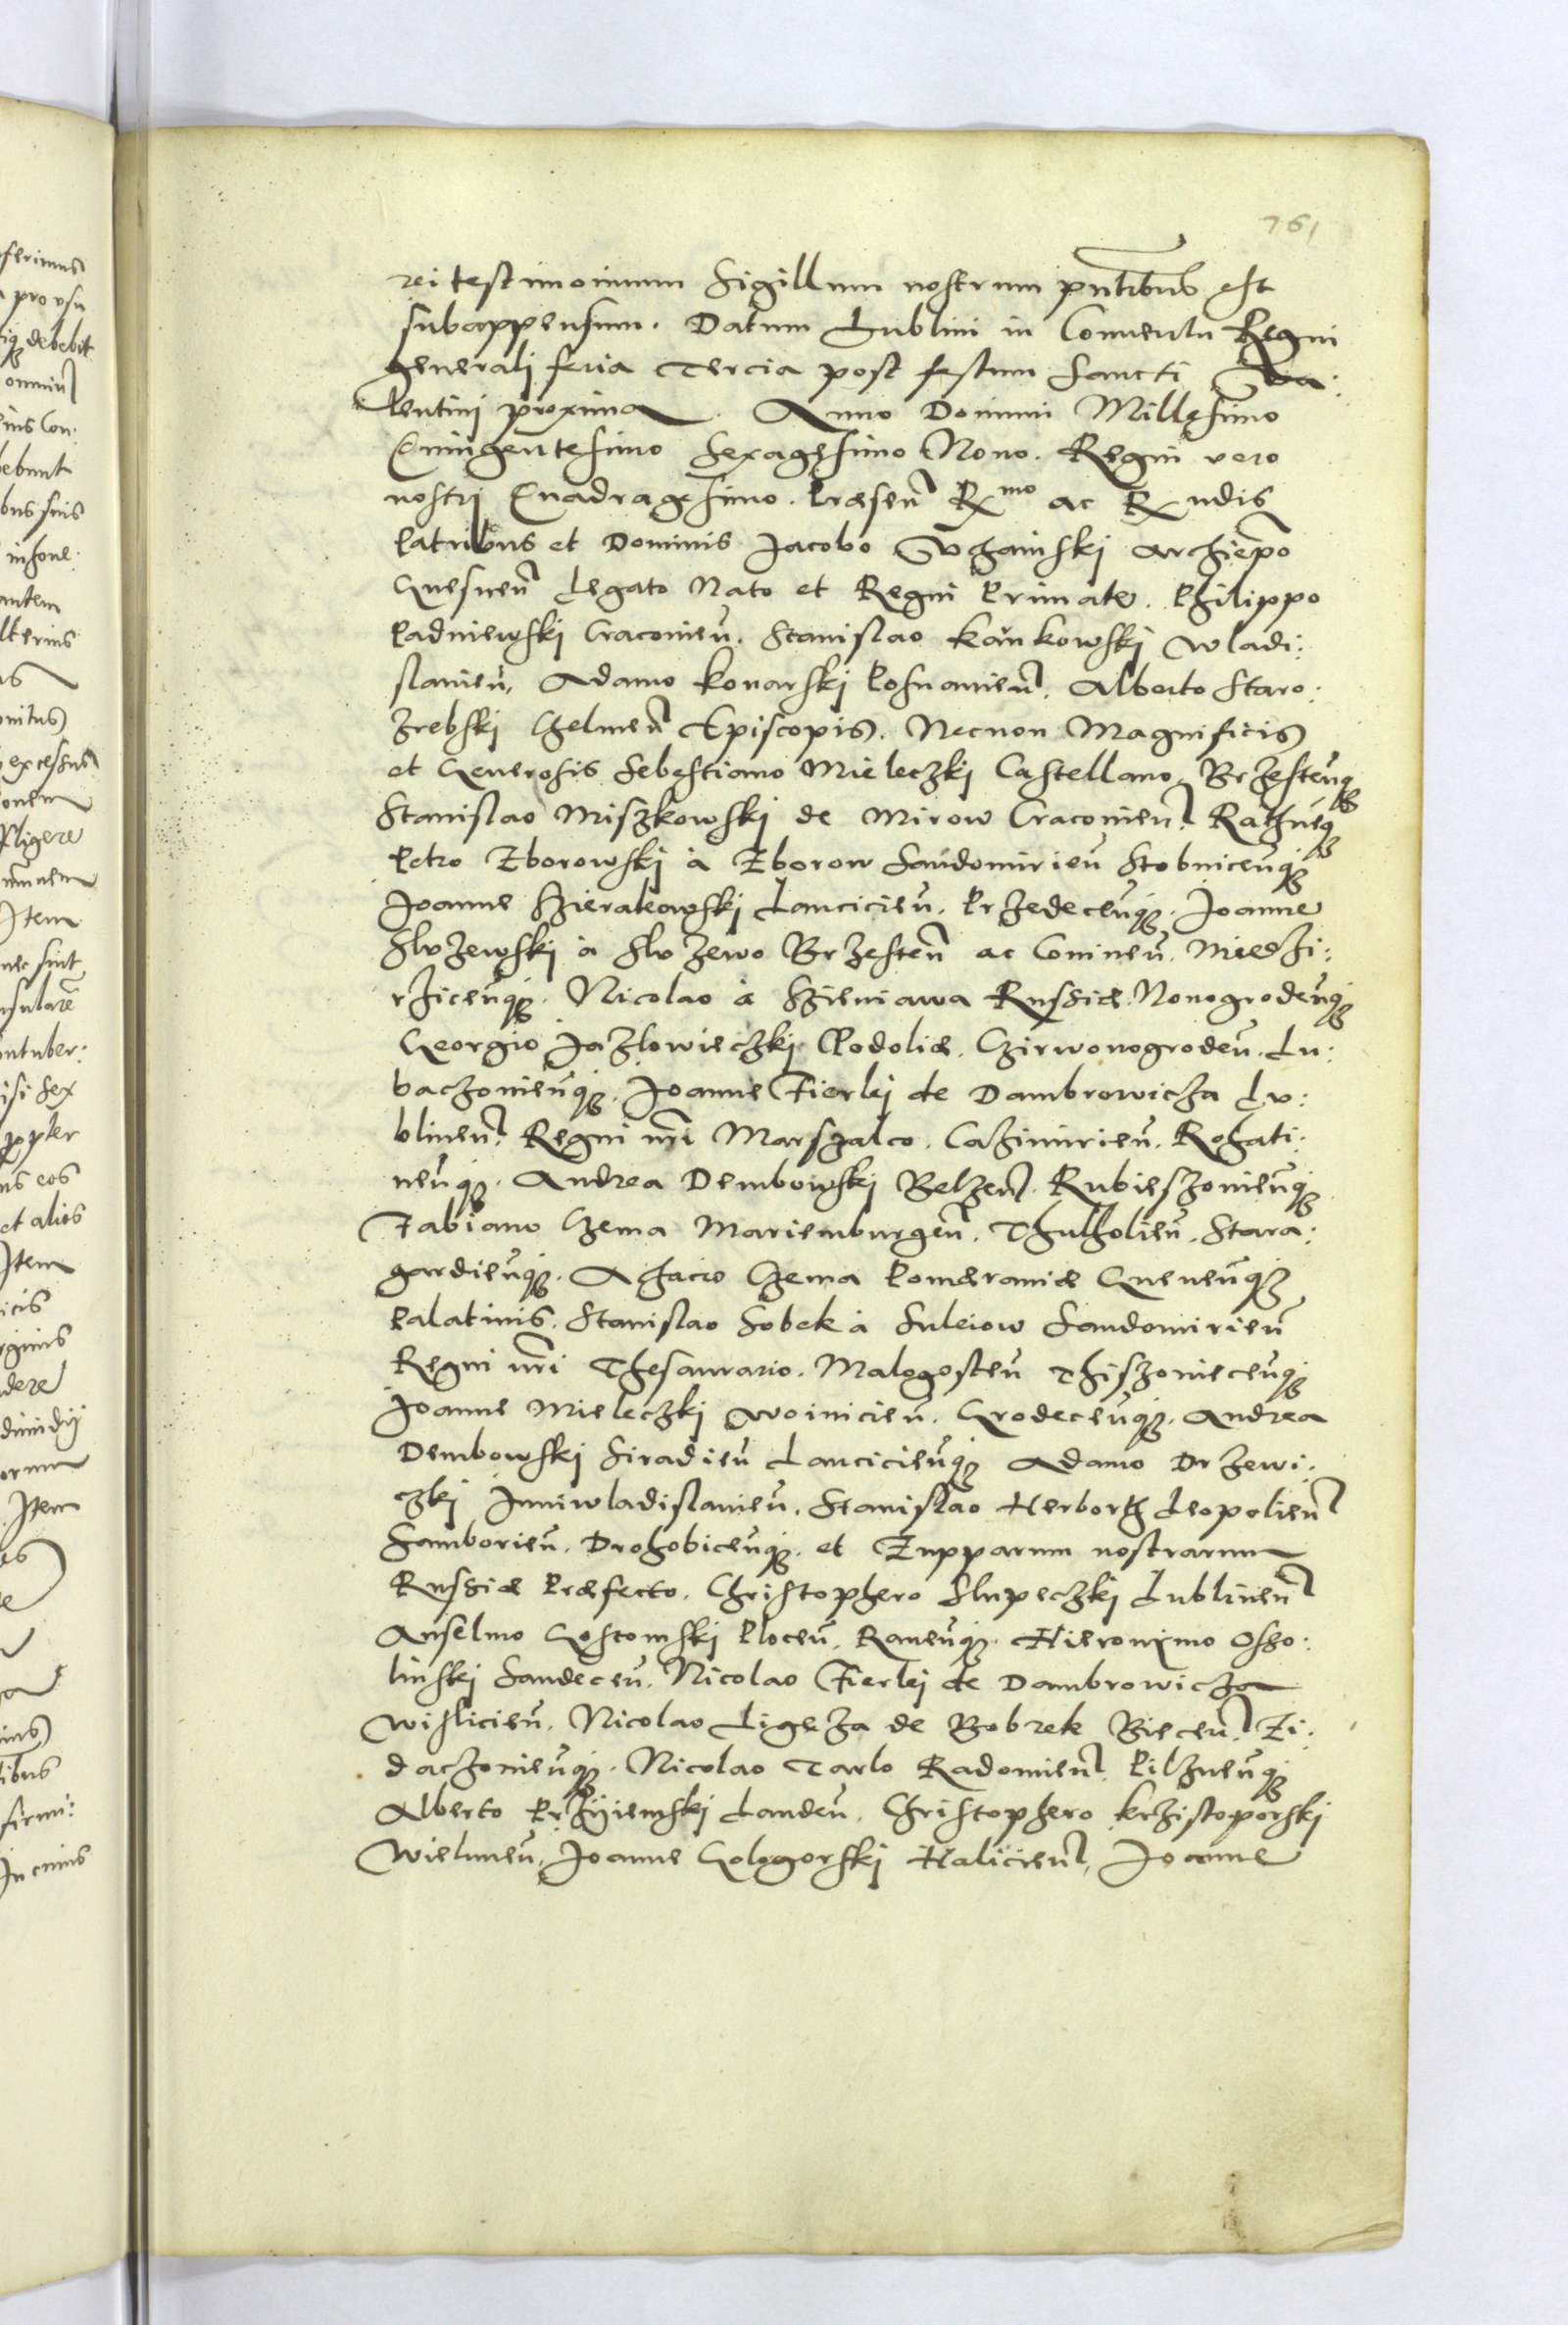 761
rei testimonium Sigillum nostrum pntibus est
subappensum. Datum Lublini in Conventu Regni
generalj feria Tercia post festum Sancti Va:
lentinj proxima. Anno Domini Millesimo
Quingentesimo Sexagesimo Nono. Regni vero
nostrj Quadragesimo. Præsen Rmo ac Rndis
Patribus et Dominis Jacobo Vchainskj Archiepo
Gnesnen Legato Nato et Regni Primate. Philippo
Padniewskj Cracovien. Stanislao Karnkowskj Wladi:
slavien, Adamo Konarskj Posnanien. Alberto Staro:
zrebskj Chelmen Episcopis. Necnon Magnificis
et Generosis Sebestiano Mieleczkj Castellano Brzestenq
Stanislao Miszkowskj de Mirow Cracovien. Rathneq
Petro Zborowskj à Zborow Sandomirien Stobnicenq
Joanne Szierakowskj Lancicien. Przedecenq. Joanne
Sluzewskj à Sluzewo Brzesten ac Coninen. Miedzi:
rzicenq. Nicolao à Szieniawa Russiæ Nouogrodenq
Georgio Jazlowieczkj Podoliæ. Czirwonogroden. Lu:
baczovienq. Joanne Fierlej de Dambrowicza Lu:
blinen. Regni nri Marszalco. Cazimirien. Rohati:
nenq. Andrea Dembowskj Belzen. Rubieszovienq
Fabiano Czema Mariemburgen. Thucholien. Stara:
gardienq. Achacio Czema Pomæraniæ Gnevenq
Palatinis. Stanislao Sobek à Suleiow Sandomirien
Regni nri Thesaurario. Malogosten Thiszoviecenq
Joanne Mieleczkj Woinicien. Grodecenq. Andrea
Dembowskj Siradien Lancicienq Adamo Drzewi:
czkj Juniwladislavien. Stanislao Herborth Leopolien
Samborien. Drohobicenq. et Zupparum nostrarum
Russiæ Præfecto. Christophero Slupeczkj Lublinen
Anselmo Gostomskj Plocen. Ravenq. Hieronimo Osso:
linskj Sandecen. Nicolao Fierlej de Dambrowicza
Wislicien. Nicolao Ligeza de Bobrek Biecen. Zi:
daczovienq. Nicolao Tarlo Radomien. Pilznenq
Alberto Przÿiemskj Landen. Christophero Krzistoporskj
Wielunen. Joanne Gologorskj Halicien, Joanne